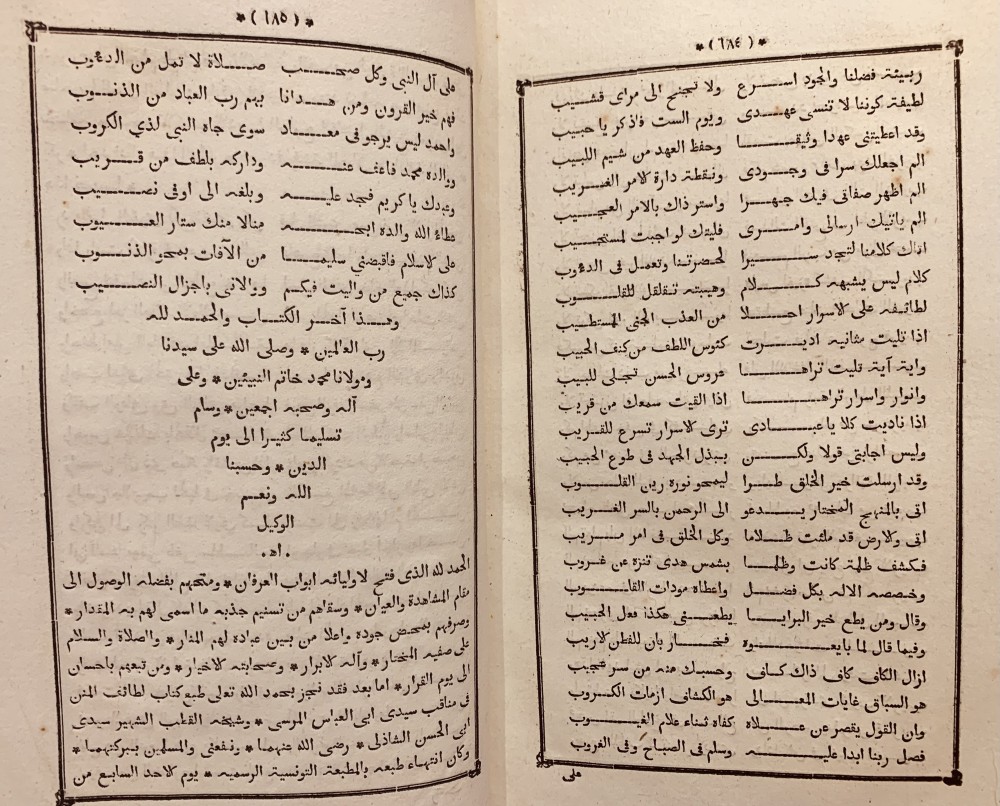 *(٦٨٤)*
ربيئة فضلنا والجود اســـرع ولا تجنح الى مراى قشـــيب
لطيفة كوننا لا تنسى عهـــدى ويوم الست فاذكر يا حبيب
وقد اعطيتنى عهدا وثيقـــا وحفظ العهد من شيم اللبيب
الم اجعلك سرا فى وجـــودى ونقطة دارة لامر الغـــريب
الم اظهر صفاتى فيك جهـــرا واستر ذاك بالامر العجـــيب
الم ياتيك ارسالى وامـــرى فليتك لو اجبت لمستجـــيب
اتاك كلامنا لتجد ســـيرا لحضرتنا وتعمل فى الدءوب
كلام ليس يشبهه كـــلام وهيبته تقلقل للقلـــوب
لطائفه على لاسرار احـــلا من العذب الجنى المستطـــيب
اذا تليت مثانيه اديـــرت كئوس اللطف من كنف الحبيب
واية آية تليت تراهـــا عروس الحسن تجلى للبيب
وانوار واسرار تراهـــا اذا القيت سمعك من قريب
اذا ناديت كلا يا عبـــادى ترى لاسرار تسرع للقـــريب
وليس اجابتى قولا ولكـــن ببذل الجهد فى طوع الحبيب
وقد ارسلت خير الخلق طـــرا ليمحو نوره رين القلـــوب
اتى بالمنهج المختار يـــدعو الى الرحمن بالسر الغـــريب
اتى ولارض قد ملئت ظـــلاما وكل الخلق فى امر مـــريب
فكشف ظلمة كانت وظلمـــا بشمس هدى تنزه عن غـــروب
وخصصه الاله بكل فضـــل واعطاه مودات القلـــوب
وقال ومن يطع خير البرايـــا يطعـــنى هكذا فعل الحبيب
وفيما قال لما بايعـــوه فخـــار بان للفطن لاريب
ازال الكافى كافى ذاك كـــاف وحسبك منه من سر عجيب
هو السباق غايات المعـــالى هو الكشافى ازمات الكـــروب
وان القول يقصر عن عـــلاه كفاه ثناء علام الغيـــوب
فصل ربنا ابدا عليـــه وسلم فى الصباح وفى الغروب
على
*(٦٨٥)*
على آل النبى وكل صحـــب صـــلاة لا تمل من الدءوب
فهم خير القرون ومن هـــدانا بهم رب العباد من الذنـــوب
واحمد ليس يرجو فى معـــاد سوى جاه النبى لذي الكروب
ووالده محمد فاعف عنـــه وداركه بلطف من قـــريب
وعبدك يا كريم فجد عليـــه وبلغه الى اوفى نصـــيب
عطاء الله والده ابحـــه منالا منك ستار العـــيوب
على لاسلام فاقبضنى سليمـــا من الآفات بمحو الذنـــوب
كذاك جميع من واليت فيكم ووالانى باجزال النصـــيب
وهـــذا آخـــر الكتـــاب والحمـــد لله
رب العالمين * وصلى الله على سيدنا
ومولانا محمد خاتم النبيئين * وعلى
آله وصحبه اجمعين * وسلم
تسليما كثيرا الى يوم
الدين * وحسبنا
الله ونعـــم
الوكيل
.اه.
الحمد لله الذى فتح لاوليائه ابواب العرفان * ومتعهم بفضله الوصول الى
مقام المشاهدة والعيان * وسقاهم من تسنيم جذبه ما اسمى لهم به المقدار *
وصرفهم بمحض جوده واعلا من بين عباده لهم المنار * والصلاة والسلام
على صفيه المختار * وآله لابرار * وصحابته لاخيار * ومن تبعهم باحسان
الى يوم القرار * اما بعد فقد نجز بحمد الله تعالى طبع كتاب لطائف المنن
فى مناقب سيدى ابى العباس المرسى * وشيخه القطب الشهير سيدى
ابى الحسن الشاذلى * رضى الله عنهما * ونفعنى والمسلمين ببركتهما *
وكان انتهاء طبعه بالمطبعة التونسية الرسميه * يوم لاحد السابع من